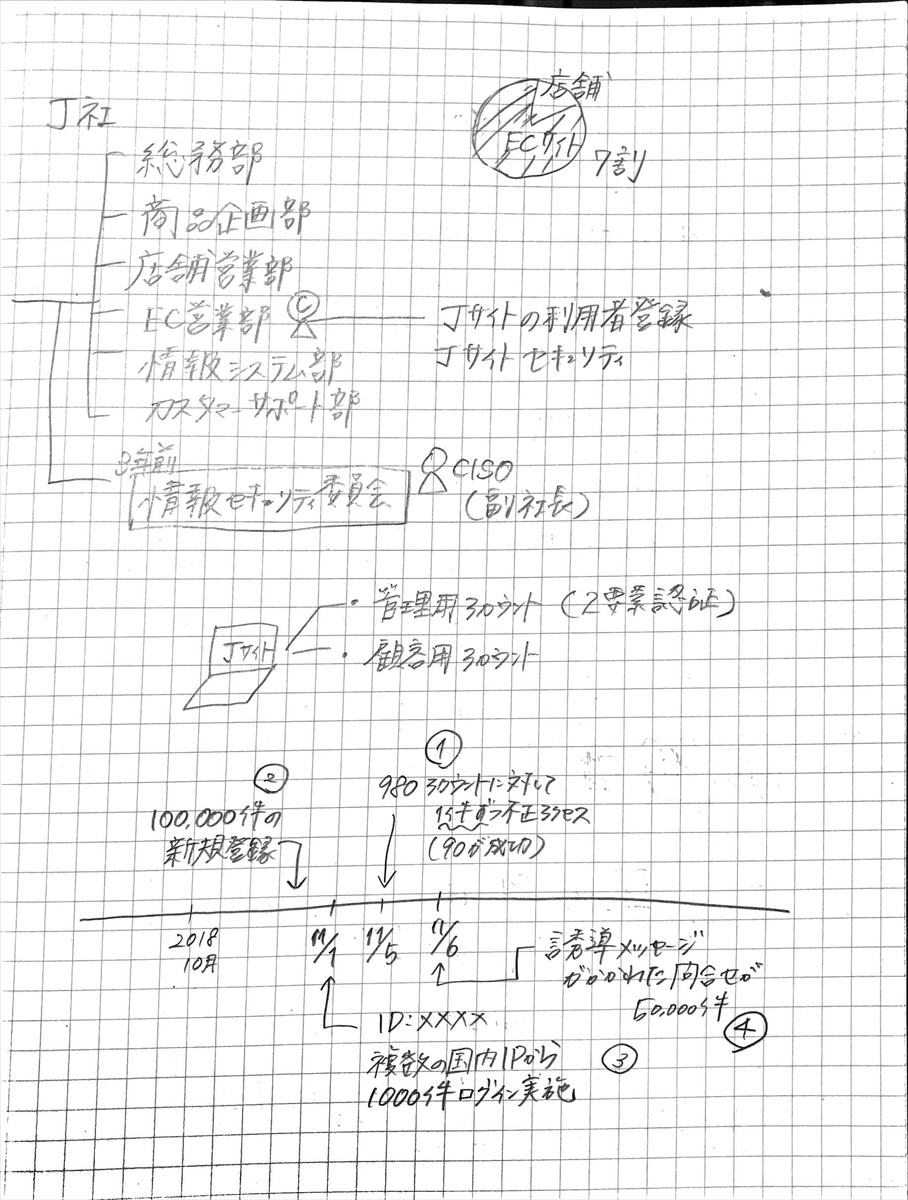 J社
店舗
ECサイト
7割
総務部
商品企画部
店舗営業部
EC営業部
C
Jサイトの利用者登録
Jサイトセキュリティ
情報システム部
カスタマーサポート部
3年前
情報セキュリティ委員会
CISO
(副社長)
Jサイト
・管理用アカウント(2要素認証)
・顧客用アカウント
①
②
980アカウントに対して
1件ずつ不正アクセス
(90が成功)
100,000件の
新規登録
2018
10月
11/1
11/5
11/6
誘導メッセージ
がかかれた問合せが
50,000件
④
ID:××××
複数の国内IPから
1000件ログイン実施
③